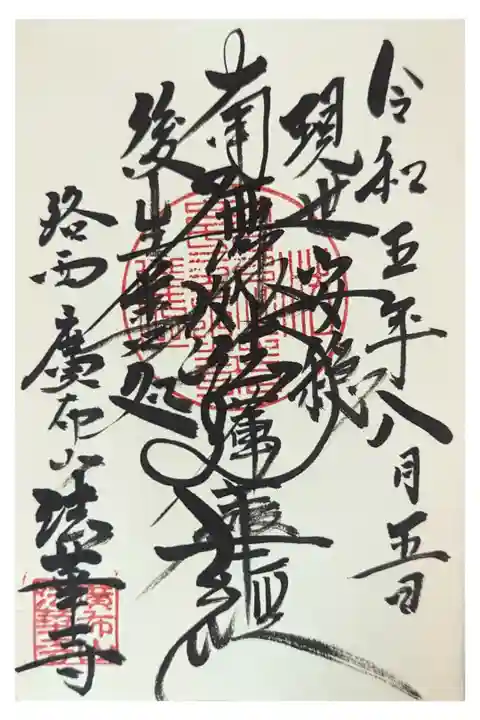 令和五年八月五日
現世安穏
南無妙法蓮華経
後生善処
洛西 廣布山 法華寺